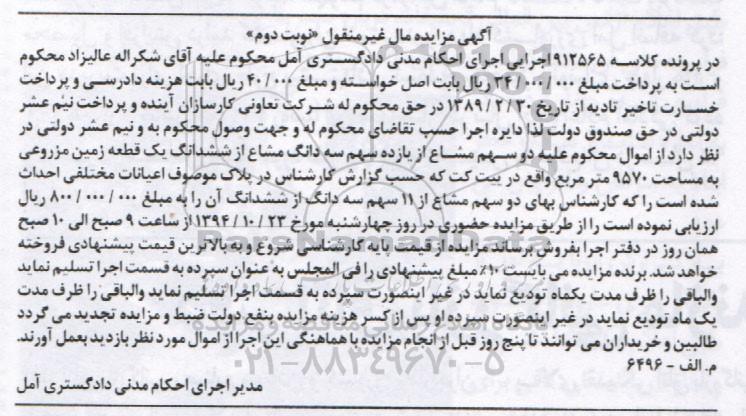 آگهی مزایده مال غیرمنقول «نوبت دوم»
در پرونده کلاسه ۹۱۲۵۶۵ اجرایی اجرای احکام مدنی دادگستری آمل محکوم علیه آقای شکراله عالیزاد محکوم
است به پرداخت مبلغ ۲۴/۰۰۰/۰۰۰ ریال بابت اصل خواسته و مبلغ ۴۰/۰۰۰ ریال بابت هزینه دادرسی و پرداخت
خسارت تاخیر تادیه از تاریخ ۱۳۸۹/۲/۳۰ در حق محکوم له شرکت تعاونی کارسازان آینده و پرداخت نیم عشر
دولتی در حق صندوق دولت لذا دایره اجرا حسب تقاضای محکوم له و جهت وصول محکوم به و نیم عشر دولتی در
نظر دارد از اموال محکوم علیه دو سهم مشاع از یازده سهم سه دانگ مشاع از ششدانگ یک قطعه زمین مزروعی
به مساحت ۹۵۷۰ متر مربع واقع در ییت کت که حسب گزارش کارشناس در پلاک موصوف اعیانات مختلفی احداث
شده است را که کارشناس بهای دو سهم مشاع از ۱۱ سهم سه دانگ از ششدانگ آن را به مبلغ ۸۰۰/۰۰۰/۰۰۰ ریال
ارزیابی نموده است را از طریق مزایده حضوری در روز چهارشنبه مورخ ۱۳۹۴/۱۰/۲۳ از ساعت ۹ صبح الی ۱۰ صبح
همان روز در دفتر اجرا بفروش برساند مزایده از قیمت پایه کارشناسی شروع و به بالاترین قیمت پیشنهادی فروخته
خواهد شد. برنده مزایده می بایست ۱۰٪ مبلغ پیشنهادی را فی المجلس به عنوان سپرده به قسمت اجرا تسلیم نماید
والباقی را ظرف مدت یکماه تودیع نماید در غیر اینصورت سپرده به قسمت اجرا تسلیم نماید والباقی را ظرف مدت
یک ماه تودیع نماید در غیر اینصورت سپرده او پس از کسر هزینه مزایده بنفع دولت ضبط و مزایده تجدید می گردد
طالبین و خریداران می توانند تا پنج روز قبل از انجام مزایده با هماهنگی این اجرا از اموال مورد نظر بازدید بعمل آورند.
م. الف - ۶۴۹۶
مدیر اجرای احکام مدنی دادگستری آمل
ParsNamadData
۰۲۱-۸۸۳۴۹۶۷۰-۵